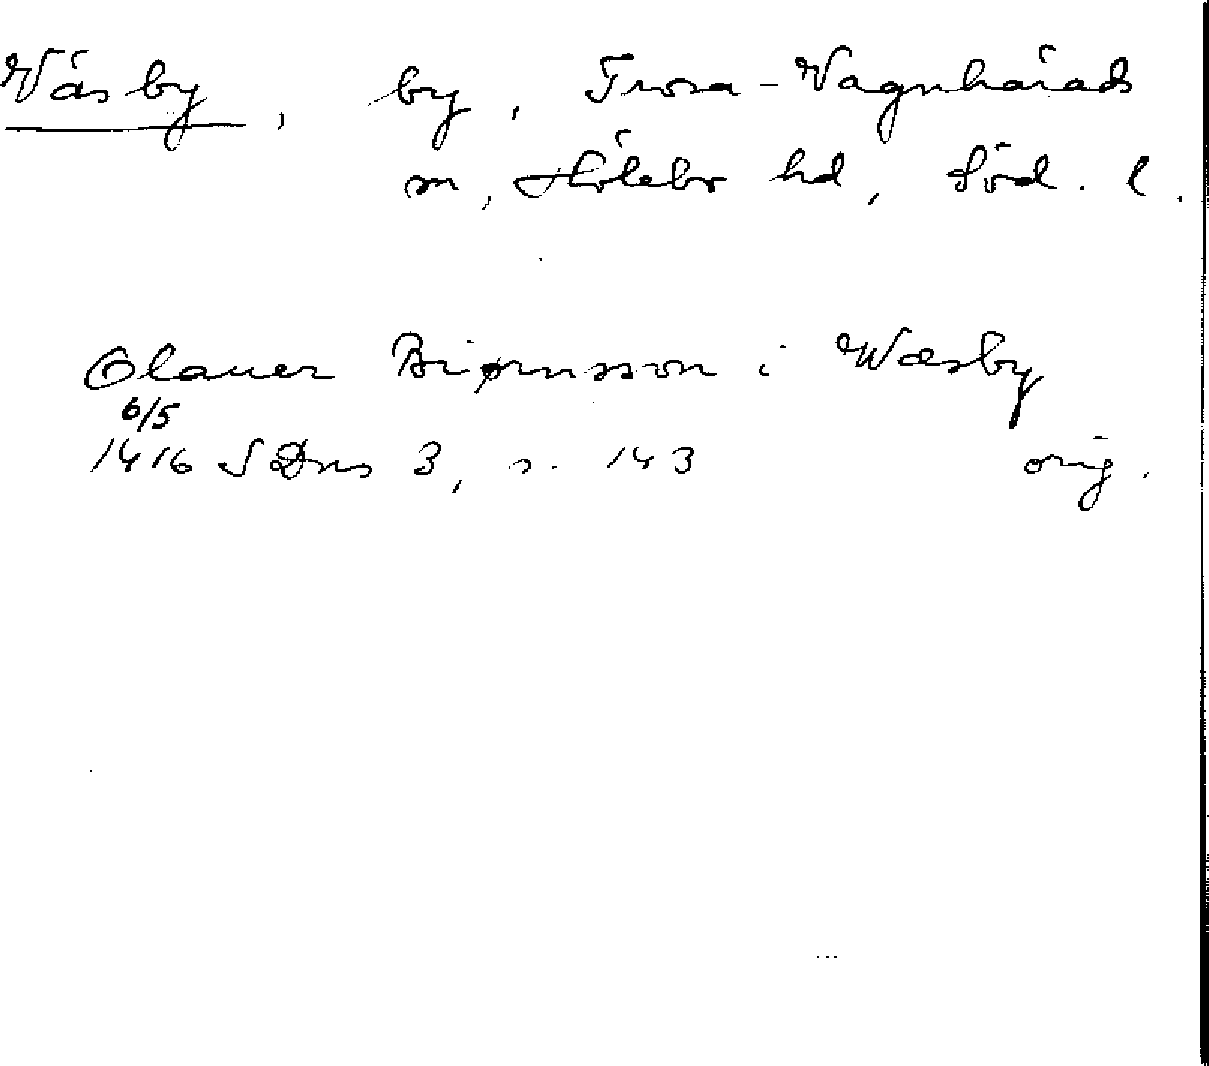 Väsby, by, Trosa-Vagnhärads
sn, Hölebo hd, Söd. l.
Olauer Biørnsson i Wæsby
6/5
1416 SDns 3, s. 143 orig.